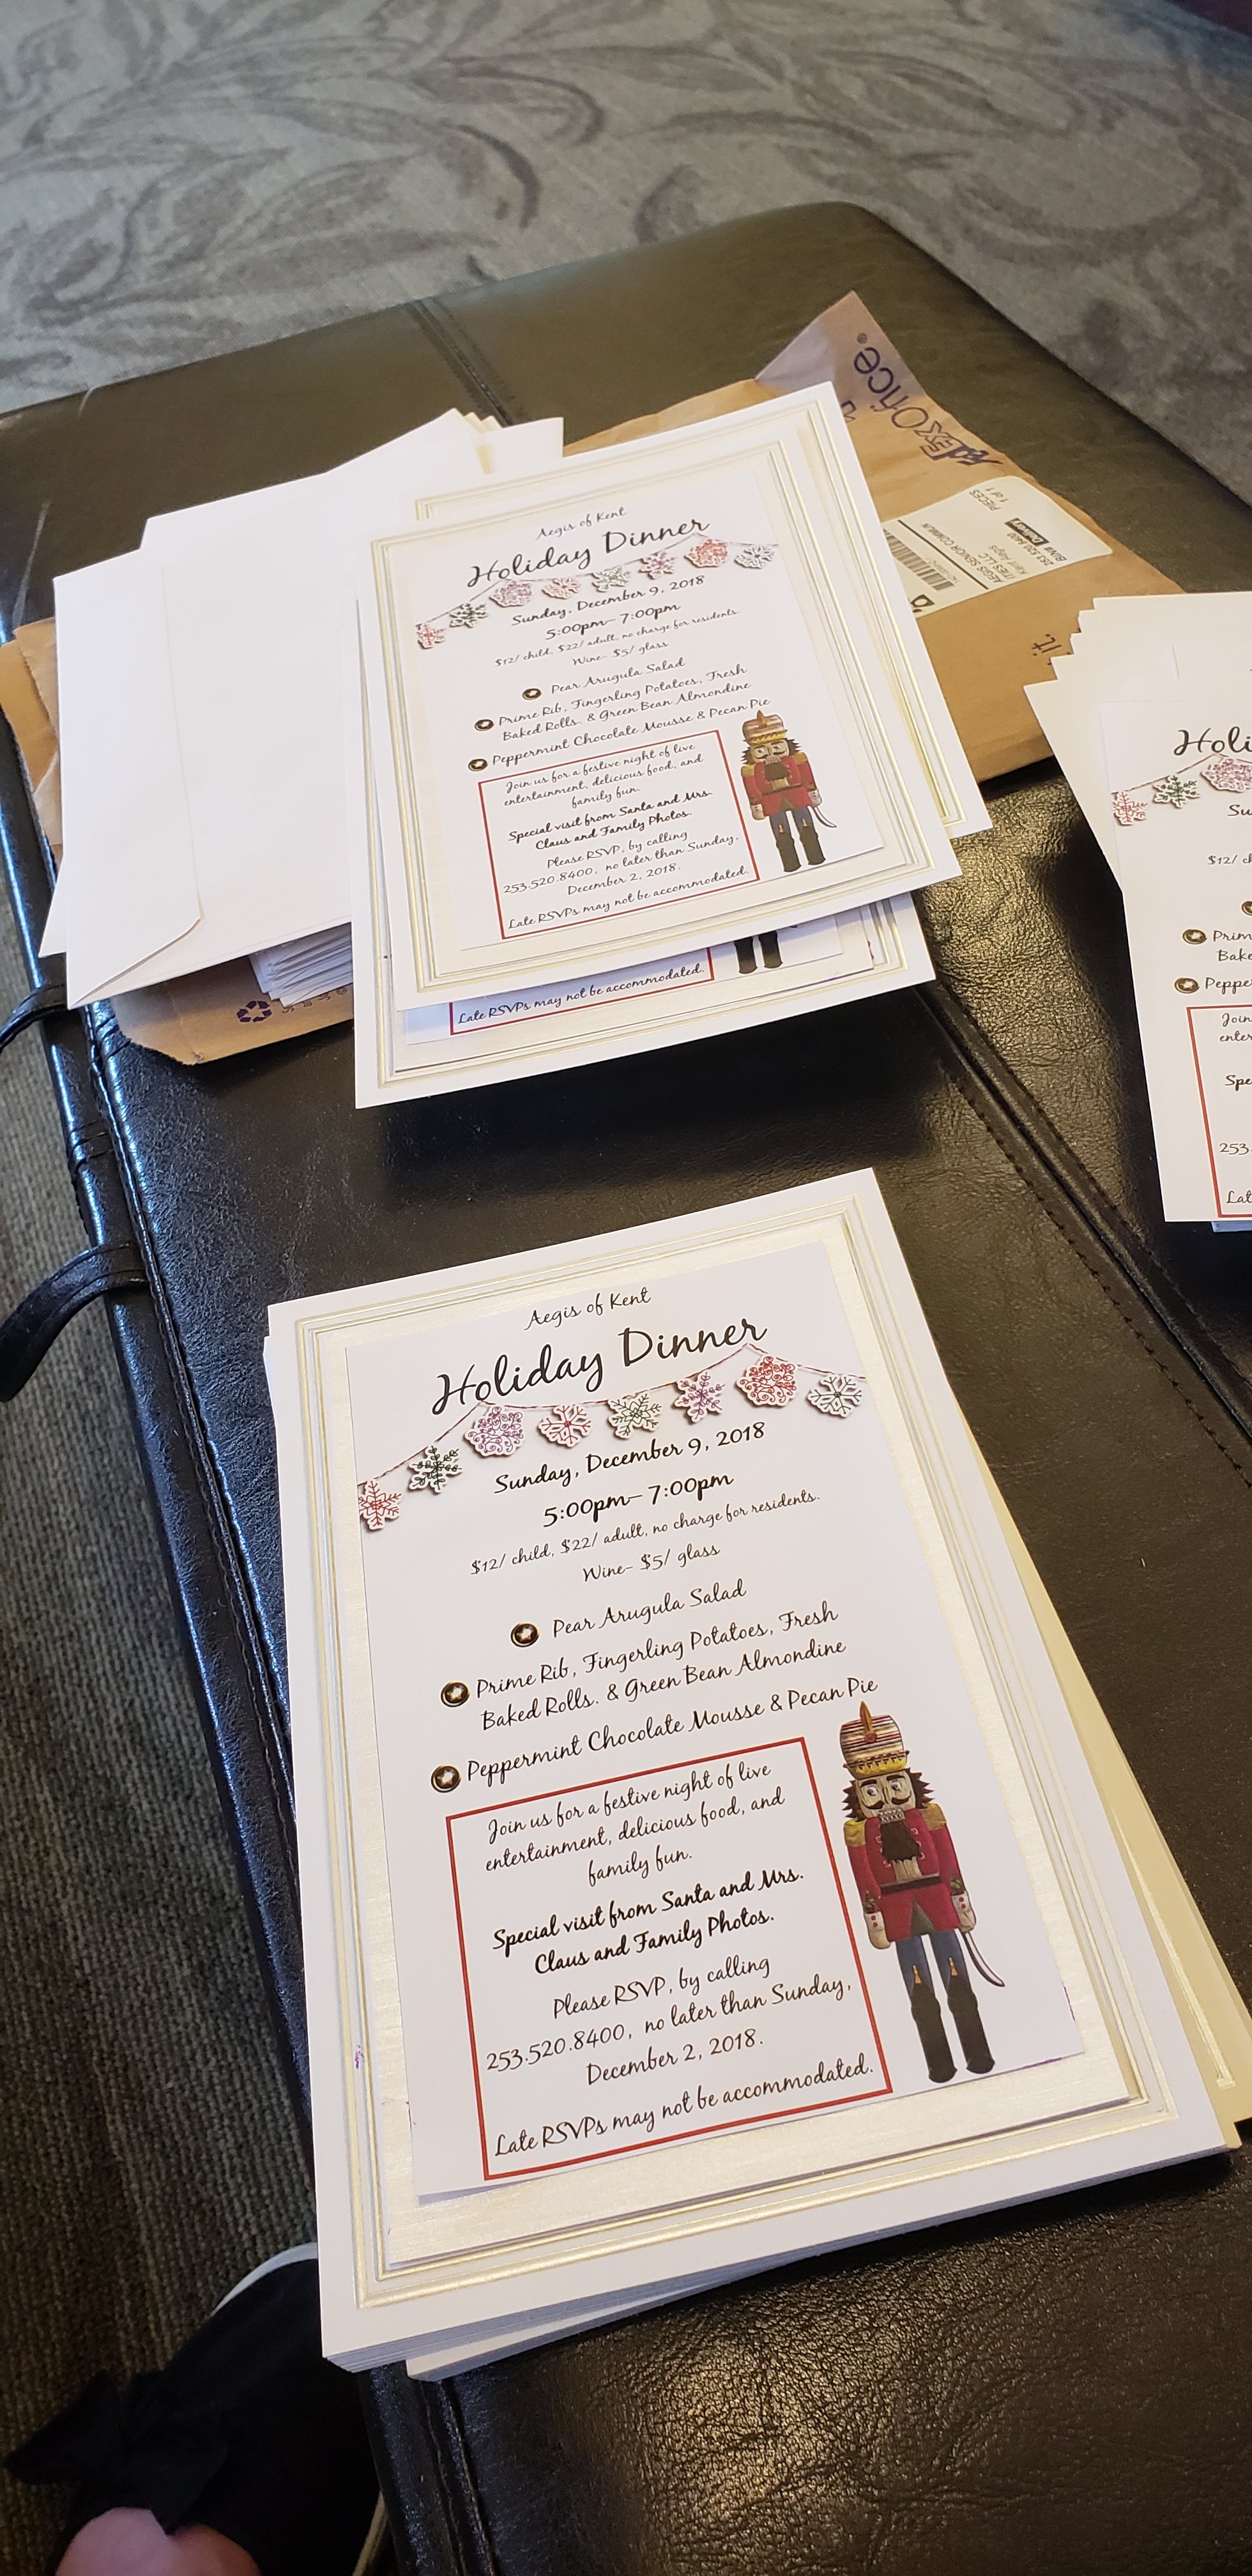 FedExOffice®
PIECES
1 of 1
253.520.8400
AEGIS SENIOR COMMUN
ITIES LLC
it.
Aegis of Kent
Holiday Dinner
Sunday, December 9, 2018
5:00pm– 7:00pm
$12/ child, $22/ adult, no charge for residents.
Wine– $5/ glass
Pear Arugula Salad
Prime Rib, Fingerling Potatoes, Fresh
Baked Rolls. & Green Bean Almondine
Peppermint Chocolate Mousse & Pecan Pie
Join us for a festive night of live
entertainment, delicious food, and
family fun.
Special visit from Santa and Mrs.
Claus and Family Photos.
Please RSVP, by calling
253.520.8400, no later than Sunday,
December 2, 2018.
Late RSVPs may not be accommodated.
Late RSVPs may not be accommodated.
Holi
Su
$12/ c
Prim
Bake
Peppe
Join
enter
Spe
253
Lat
Aegis of Kent
Holiday Dinner
Sunday, December 9, 2018
5:00pm– 7:00pm
$12/ child, $22/ adult, no charge for residents.
Wine– $5/ glass
Pear Arugula Salad
Prime Rib, Fingerling Potatoes, Fresh
Baked Rolls. & Green Bean Almondine
Peppermint Chocolate Mousse & Pecan Pie
Join us for a festive night of live
entertainment, delicious food, and
family fun.
Special visit from Santa and Mrs.
Claus and Family Photos.
Please RSVP, by calling
253.520.8400, no later than Sunday,
December 2, 2018.
Late RSVPs may not be accommodated.